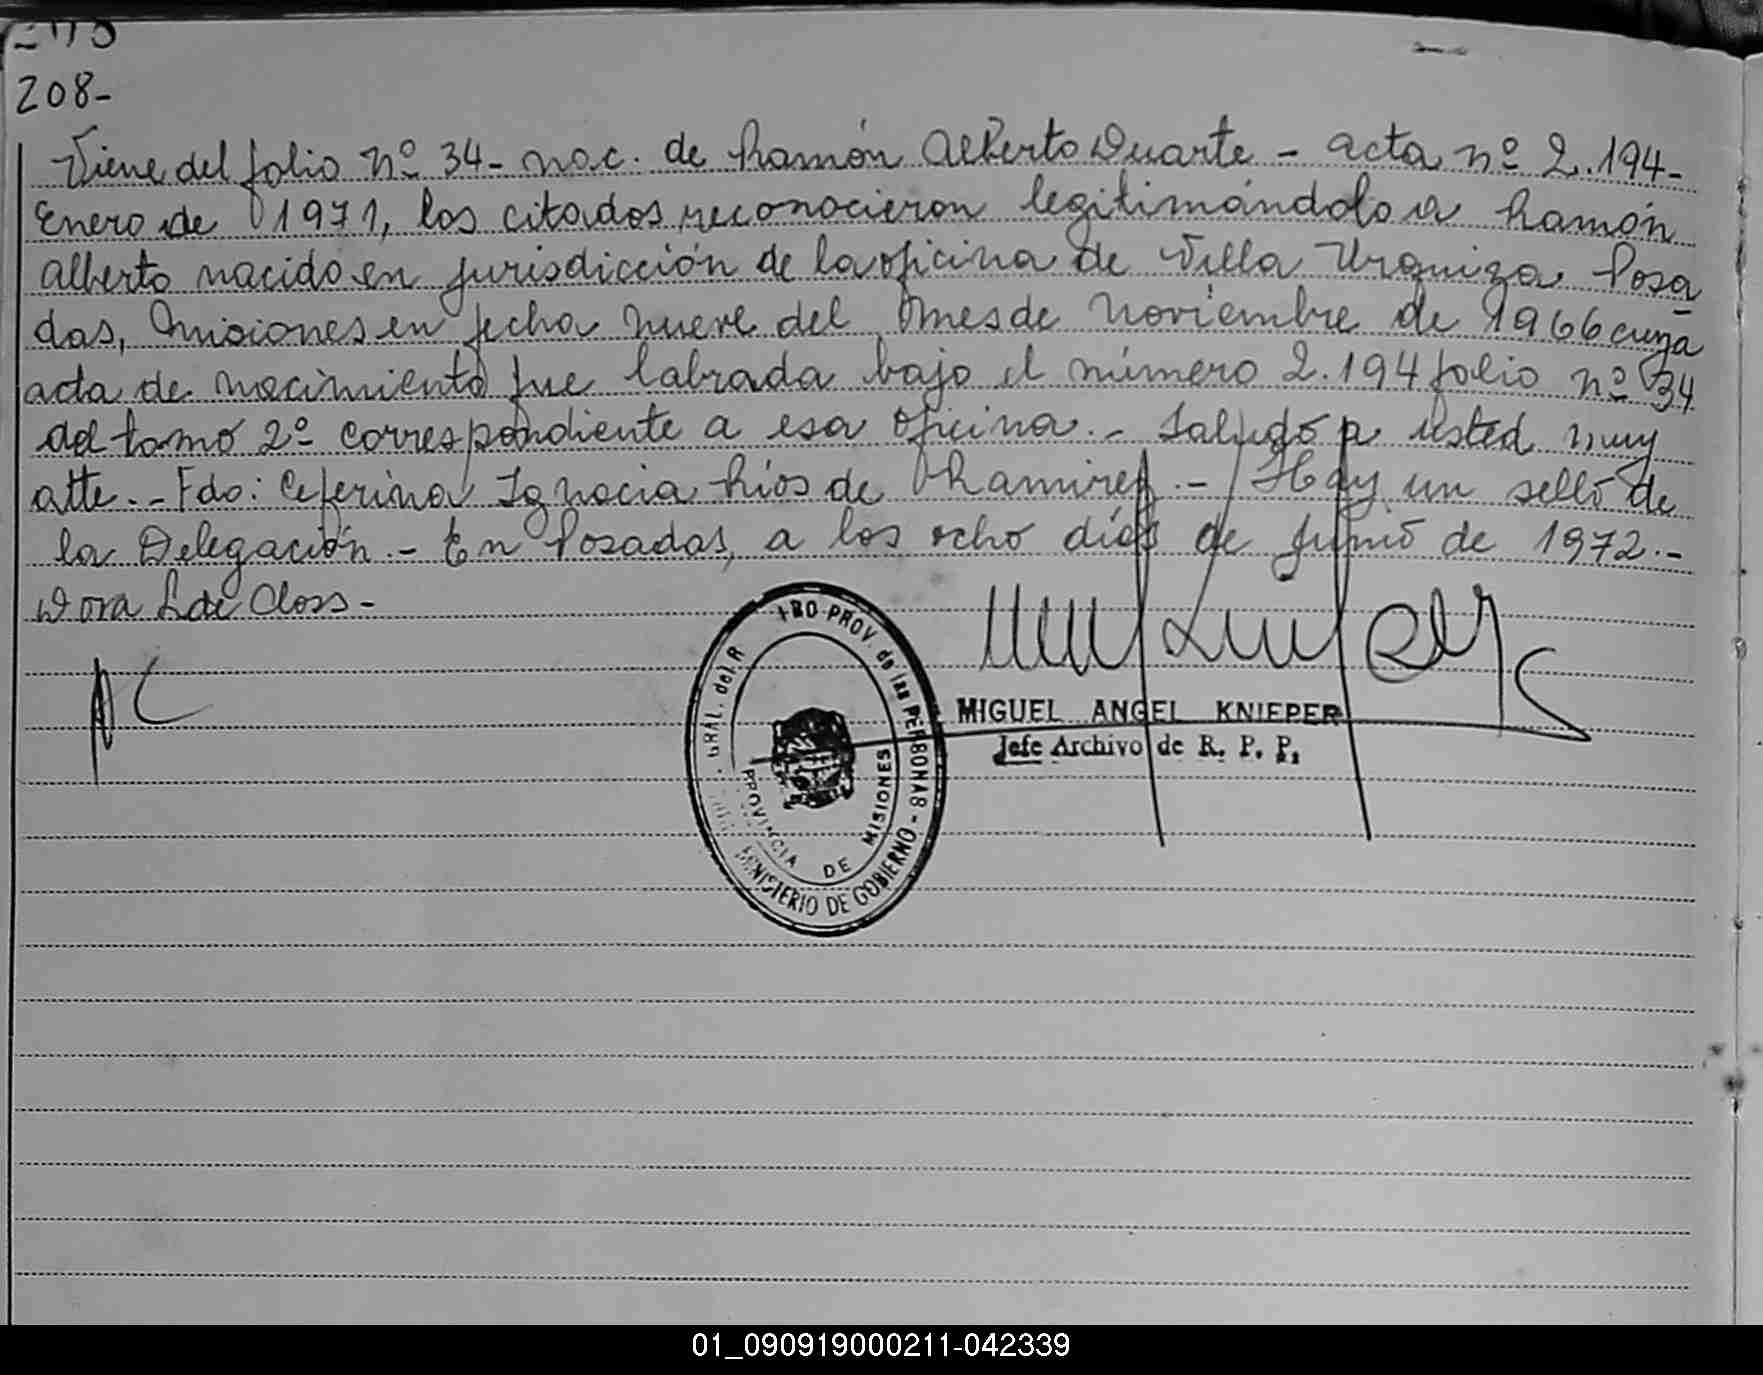 208-
Viene del folio nº 34- nac. de Ramón Alberto Duarte - acta nº 2.194-
Enero de 1971, los citados reconocieron legitimándolo a Ramón
Alberto nacido en jurisdicción de la oficina de Villa Urquiza Posa
das, Misiones en fecha nueve del mes de Noviembre de 1966 cuya
acta de nacimiento fue labrada bajo el número 2.194 folio nº 34
del tomo 2º correspondiente a esa oficina.- Saludo a usted muy
atte.- Fdo: Ceferina Ignacia Ríos de Ramirez.- Hay un sello de
la Delegación.- En Posadas, a los ocho días de Junio de 1972.-
Dora L de Closs-
GRAL. del R PROV. de las PERSONAS - MINISTERIO DE GOBIERNO
PROVINCIA DE MISIONES
MIGUEL ANGEL KNIEPER
Jefe Archivo de R. P. P.
01_090919000211-042339